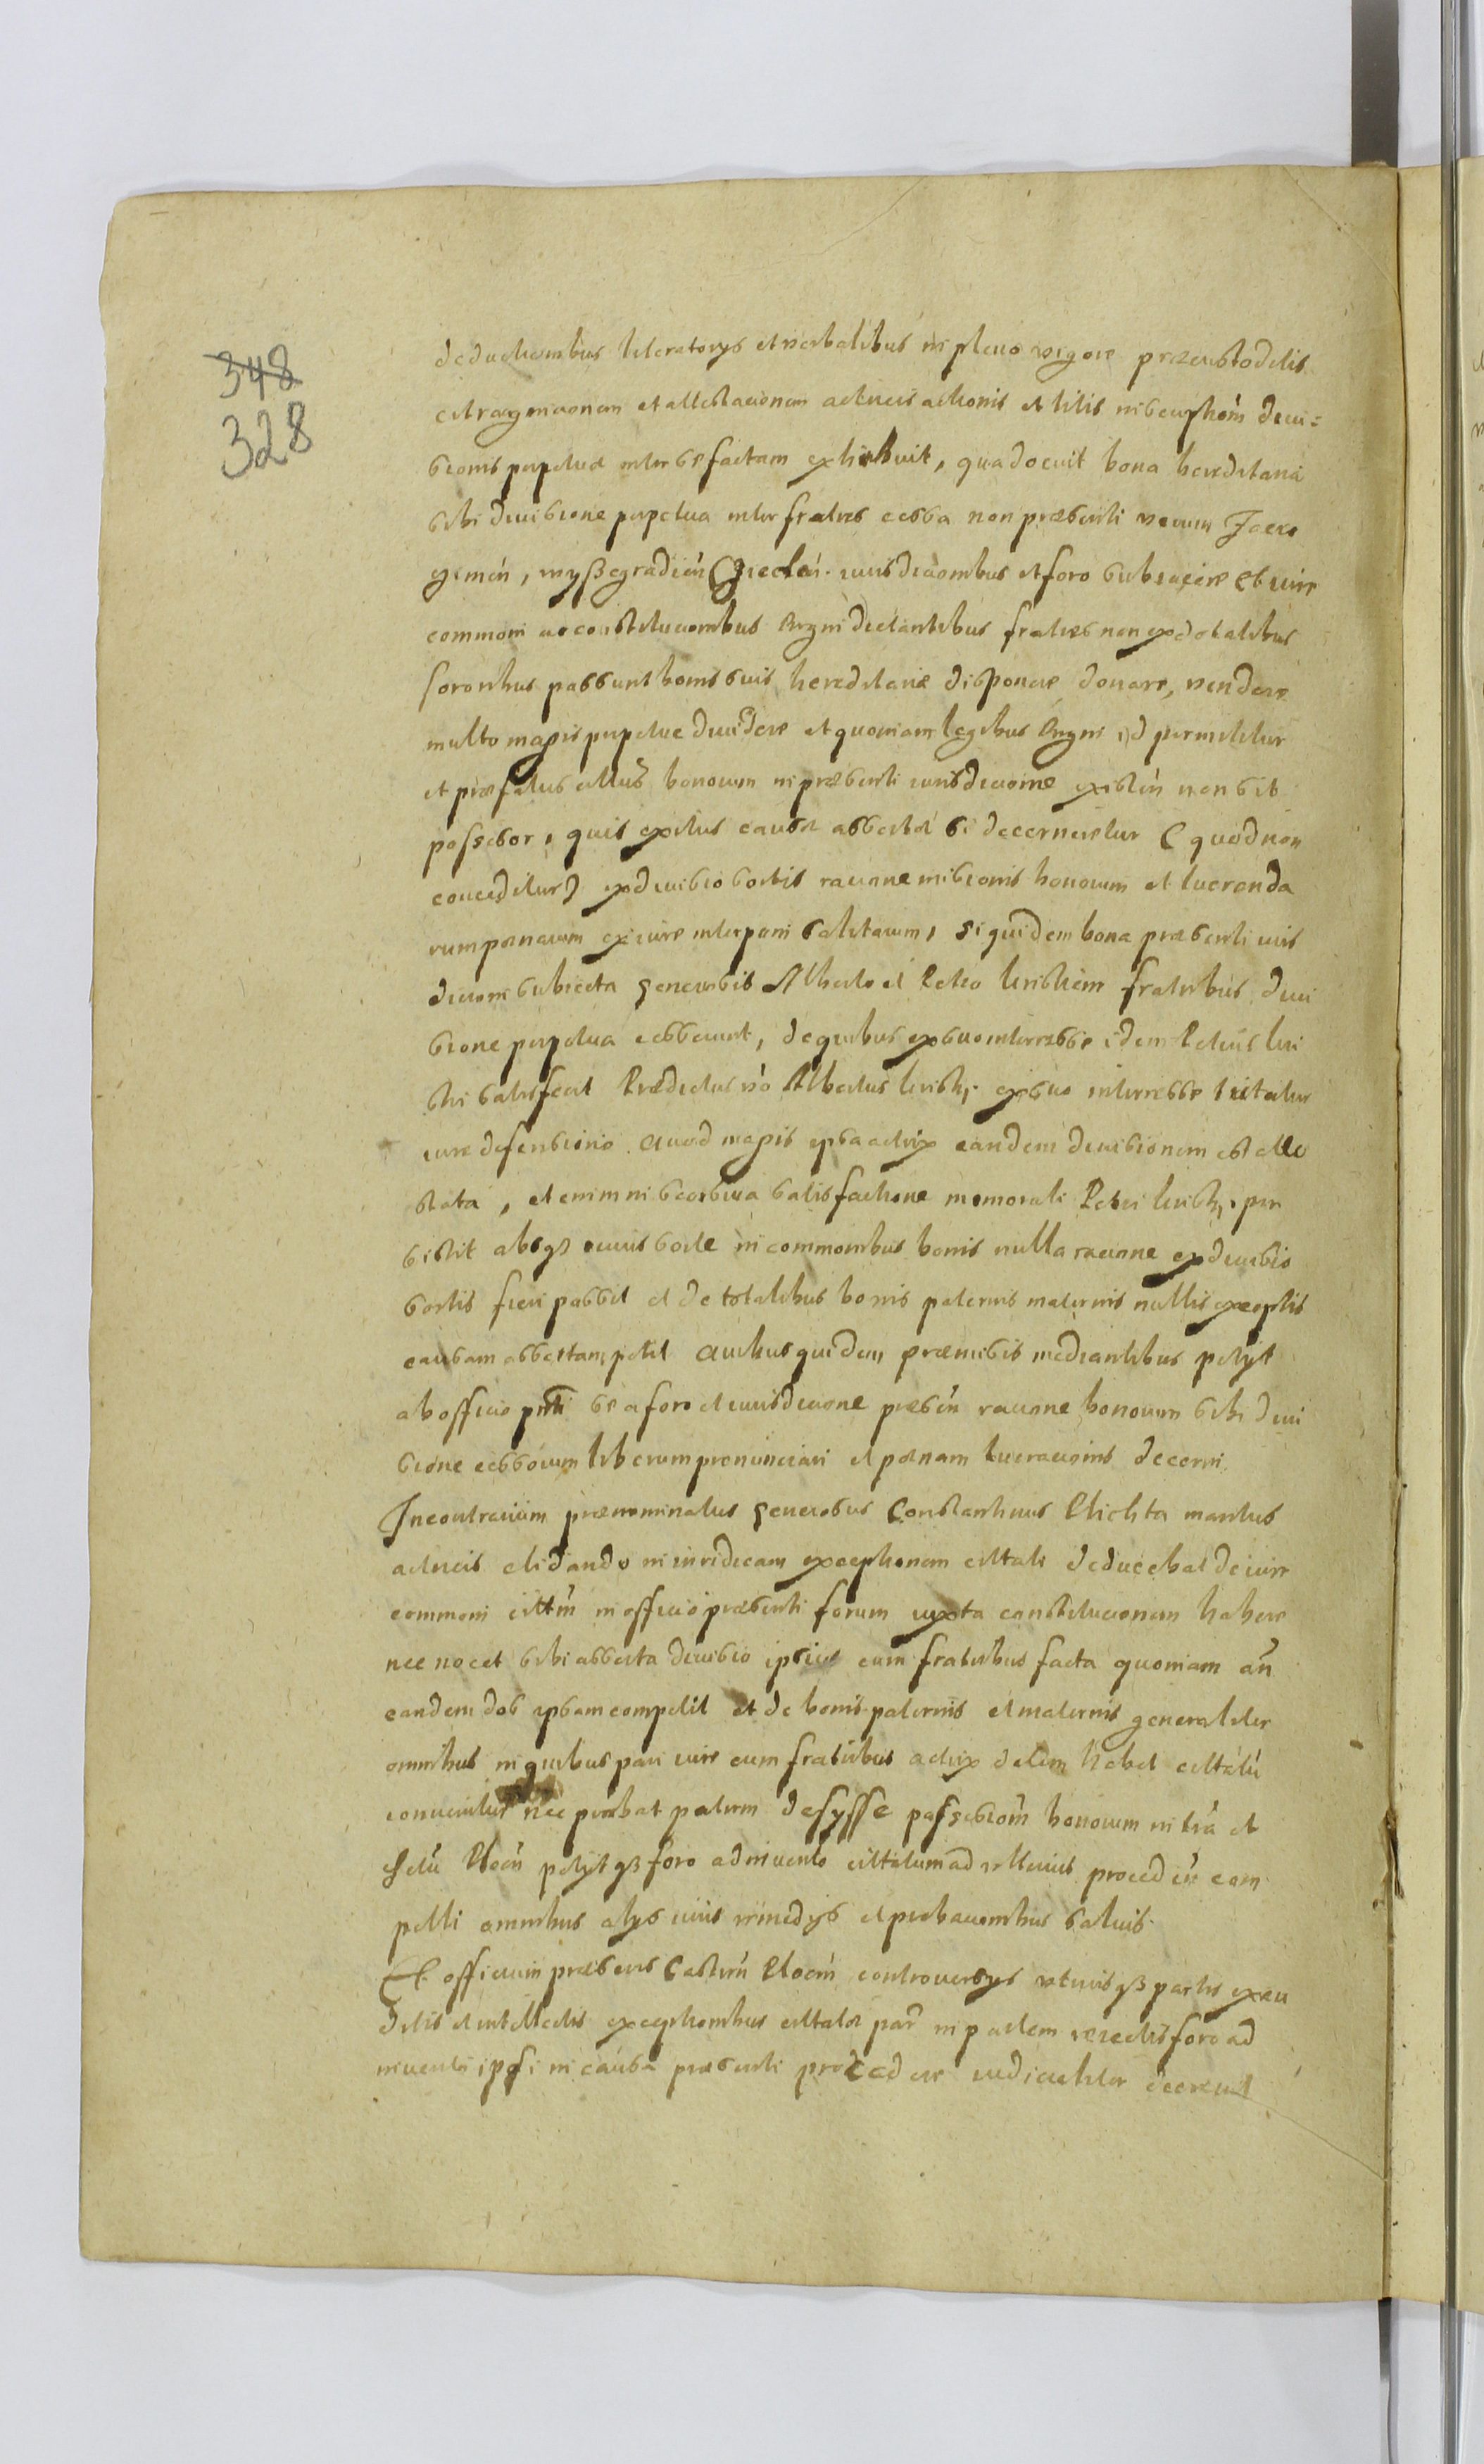 348
328
deductionibus literatorys et verbalibus in pleno vigore præcustoditis
citra agnicionem et attestacionem actricis actionis et litis inscriptioñ diui=
sionis perpetuæ inter se factam exhibuit, qua docuit bona hereditaria
sibi diuisione perpetua inter fratres cessa non præsenti verum Zacro
gimeñ, wyszegradieñ Cziechañ. iurisdicionibus et foro subiacere Et iure
communi ac constitucionibus Regni dictantibus fratres non exdotatibus
sororibus possunt bonis suis hereditariæ disponere donare, vendere
multo magis perpetue diuidere et quoniam legibus Regni id permittitur
et præfatus citatus bonorum in præsenti iurisdicione existeñ non sit
possesor, quis exitus causæ assertæ si decerneretur (quod non
conceditur) ex diuisio sortis racione missionis bonorum et lucranda
rum pænarum ex iure interponi salitarum, siquidem bona præsenti iuris
dicioni subiecta generosis Alberto et Petro fratribus diui
sione perpetua cesserunt, de quibus ex suo interresse idem Petrus
satisfecit Prædictus vo Albertus ex suo interresse tuetatur
iure defensorio. Quod magis ipsa actrix eandem diuisionem est atte
stata, et enim in satisfactione memorati Petri per
sistit absqz cuius sorte in communibus bonis nulla racione ex diuisio
sortis fieri possit et de totalibus bonis paternis maternis nullis exceptis
causam assertam petit Quibus quidem præmissis mediantibus petyt
ab officio pnti se a foro et iurisdicione præseñ racione bonorum sibi diui
sione cessorum liberum pronunciari et pænam lucracionis decerni.
In contrarium prænominatus generosus Constantinus Plichta maritus
actricis elidando in iuridicam exceptionem citati deducebat de iure
communi citatũ in officio præsenti forum iuxta constitucionem habere
nec nocet sibi asserta diuisio ipsius cum fratribus facta quoniam añ
eandem dos ipsam competit et de bonis paternis et maternis generaliter
omnibus in quibus pari iure cum fratribus actrix dotem habet citatũ
conuenitur nec probat patrem desysse possessioñ bonorum in trã et
dictũ Ploceñ petyt qz foro adinuento citatum ad vlterius procedeñ com
pelli omnibus alys iuris remedys et probacionibus saluis.
Et officium præsens Castreñ Ploceñ controuersys vtriusqz partis exau
ditis et intellectis exceptionibus citatæ par in partem reiectis foro ad
inuento ipsi in causa præsenti procedere iudicialiter decreuit